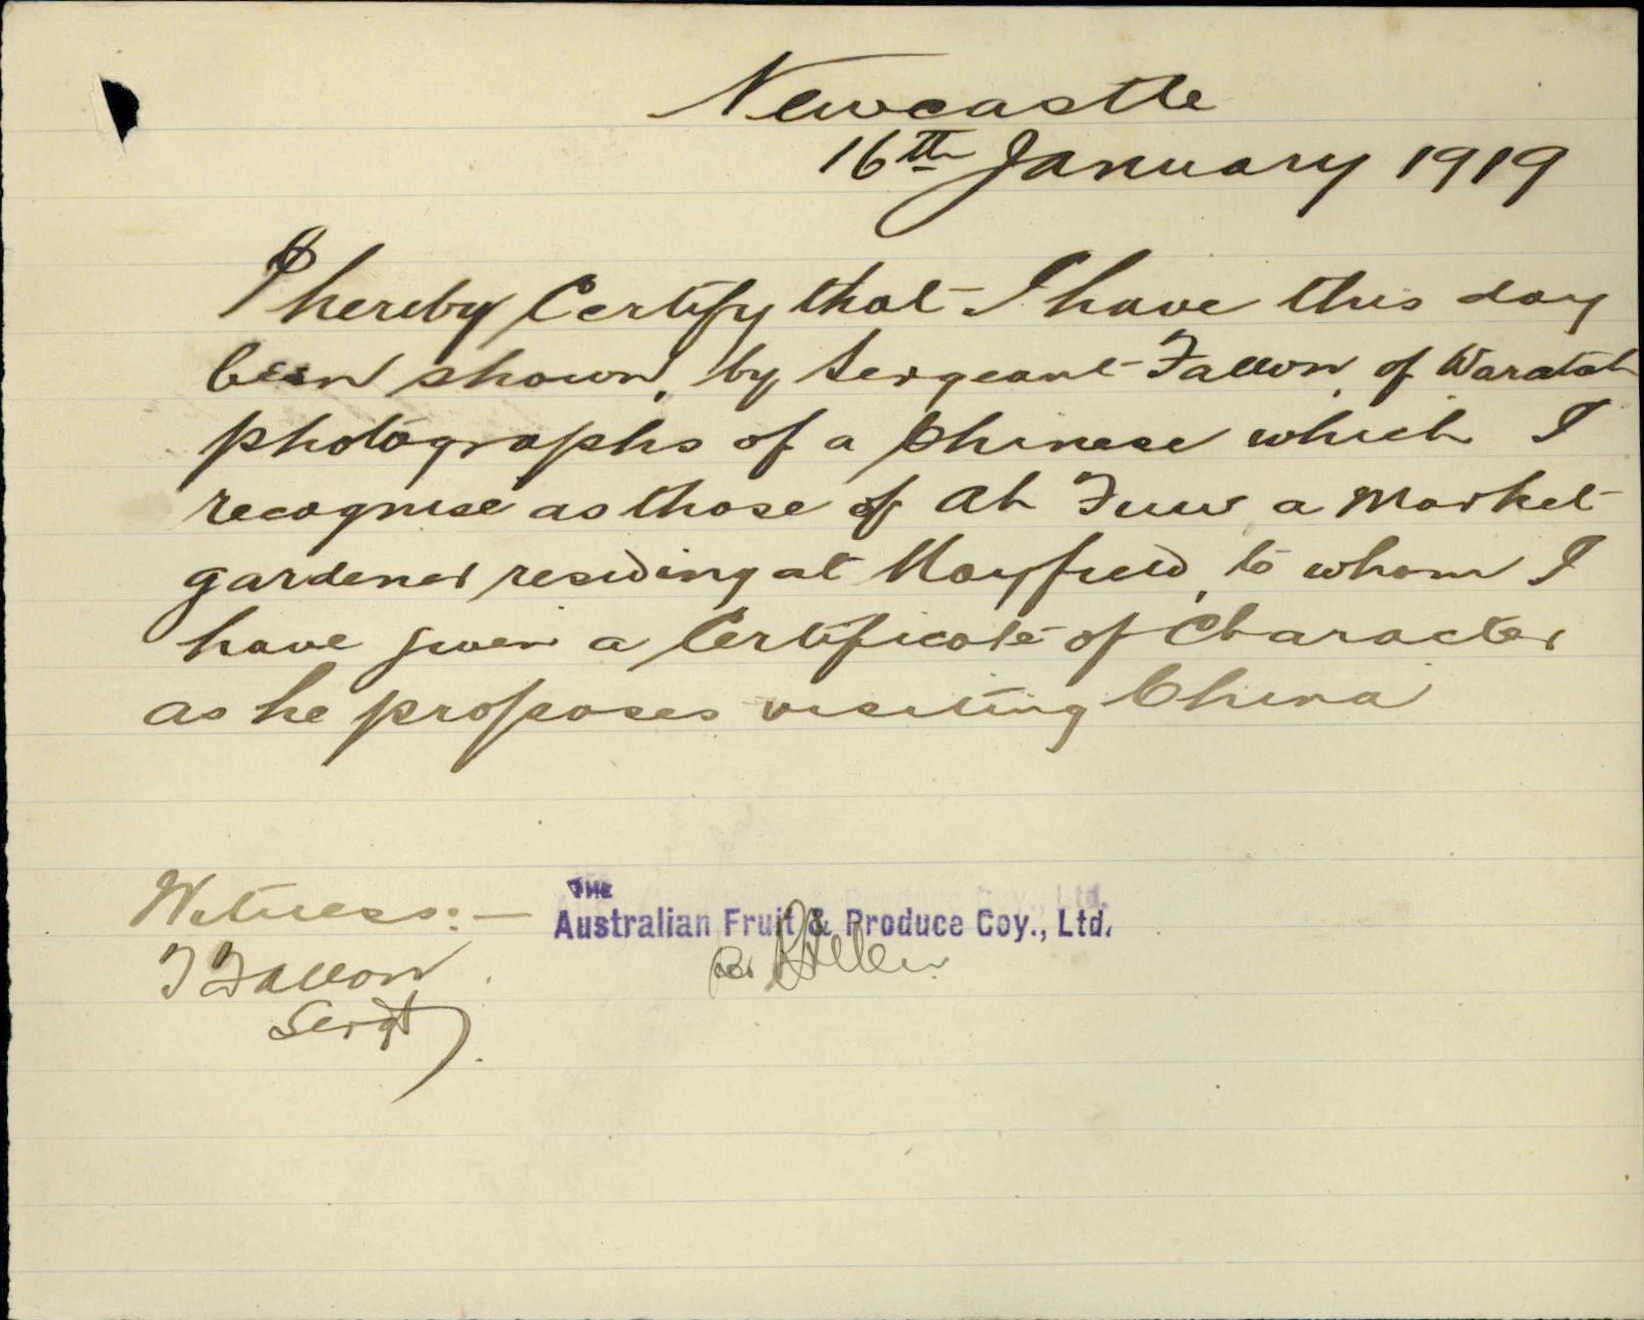 Newcastle
16th January 1919
I hereby Certify that I have this day
been shown, by Sergeant Fallon, of Waratah
photographs of a Chinese which I
recognise as those of Ah Fuw a Market
gardener residing at Mayfield, to whom I
have given a Certificate of Character
as he proposes visiting China
Witness:—
T Fallon
Sergt
THE
Australian Fruit & Produce Coy., Ltd.
Per